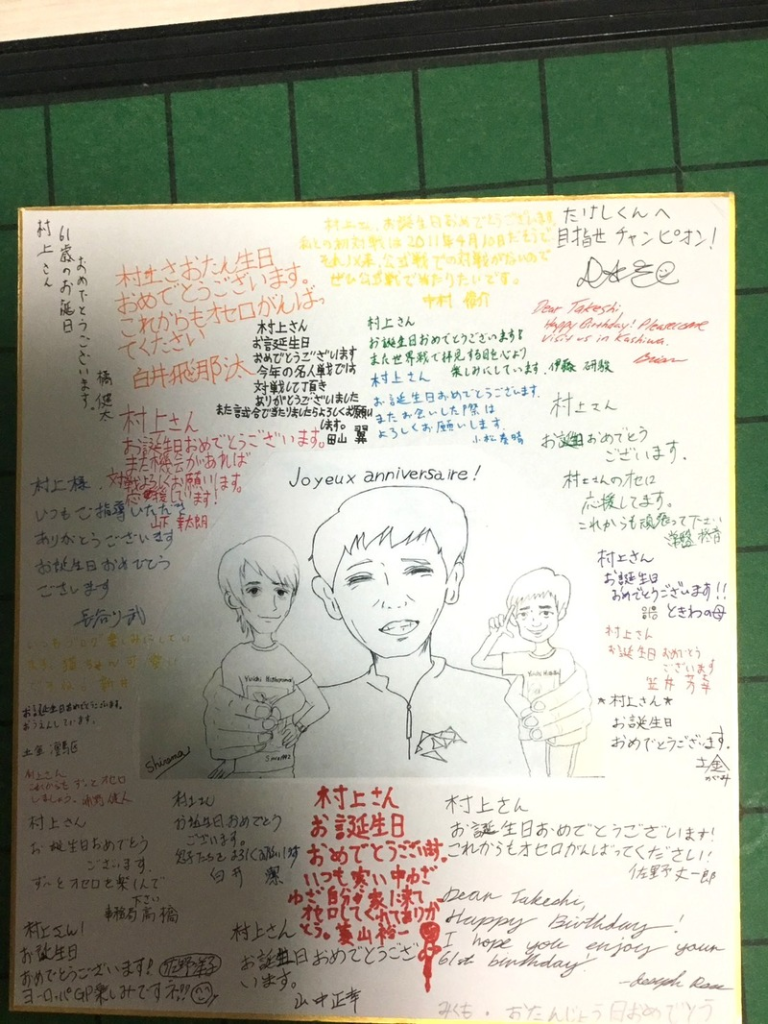 村上さん
61歳のお誕生日
おめでとうございます。
橘 健太
村上さおたん生日
おめでとうございます。
これからもオセロがんばっ
てください
白井飛那汰
村上さん、お誕生日おめでとうございます。
2011年4月10日
それ以来、公式戦での対戦がないので
ぜひ公式戦で当たりたいです。
中村
たけしくんへ
目指せチャンピオン!
Dear Takeshi
Happy Birthday! Please come
visit us in Kashiwa.
Brian
村上さん
お誕生日
おめでとうございます
今年の名人戦では
対戦して頂き
ありがとうございました
また試合で当たりましたらよろしくお願い
します。
田山 翼
村上さん
お誕生日おめでとうございます!
また世界戦で拝見する日を心より
楽しみにしています。伊藤 研駿
村上さん
お誕生日おめでとうございます。
またお会いした際は
よろしくお願いします。
小松
村上さん
お誕生日おめでとう
ございます。
村上さんのオセロに
応援してます。
これからも頑張って下さい
村上さん
お誕生日おめでとうございます。
また機会があれば
対戦よろしくお願いします。
応援しています!
山下 幸太朗
村上様、
いつもご指導いただき
ありがとうございます
お誕生日おめでとう
ございます
長谷川 武
Joyeux anniversaire!
Shirona
村上さん
お誕生日
おめでとうございます!!
ときわの母
村上さん
お誕生日おめでとう
ございます
笠井 芳幸
★村上さん★
お誕生日
おめでとうございます。
いつもブログ楽しみにしてい
お誕生日おめでとうございます。
おうえんしています。
村上さん
これからもずっとオセロ
しましょう。
村上さん
お誕生日おめでとう
ございます。
ずっとオセロを楽しんで
下さい
事務局 高橋
村上さん
お誕生日おめでとう
ございます。
息子たちをよろしくお願いします
白井 潔
村上さん
お誕生日
おめでとうございます。
いつも寒い中わざ
わざ自分の家に来て
オセロしてくれてありが
とう。美山 裕一
村上さん
お誕生日おめでとうございます!
これからもオセロがんばってください!
佐野 丈一郎
村上さん!
お誕生日
おめでとうございます!
ヨーロッパGP楽しみですネ!!
村上さん
お誕生日おめでとうござ
います。
山中正幸
Dear Takeshi,
Happy Birthday!
I hope you enjoy your
61st birthday!
-Joseph Rose
みくも・おたんじょう日おめでとう